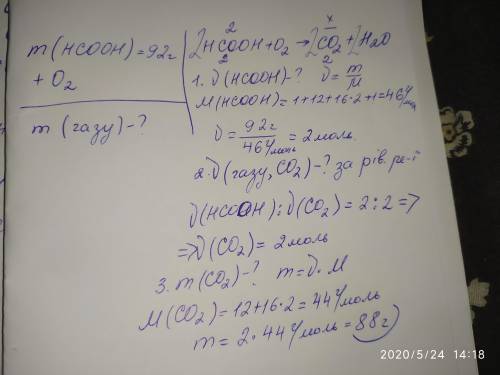 m(HCOOH)=92г
+ O₂
m (газу)-?
2 x
2HCOOH+O₂ → 2CO₂+2H₂O
2 2
1. ν(HCOOH)-? ν=m/M
M(HCOOH)=1+12+16·2+1=46г/моль
ν = 92г/46г/моль = 2 моль.
2. ν(газу, CO₂)-? за рів. ре-ї
ν(HCOOH):ν(CO₂)=2:2=>
=>ν(CO₂)=2моль
3. m(CO₂)-? m=ν·M
M(CO₂)=12+16·2=44г/моль
m=2·44г/моль=88г
2020/5/24 14:18